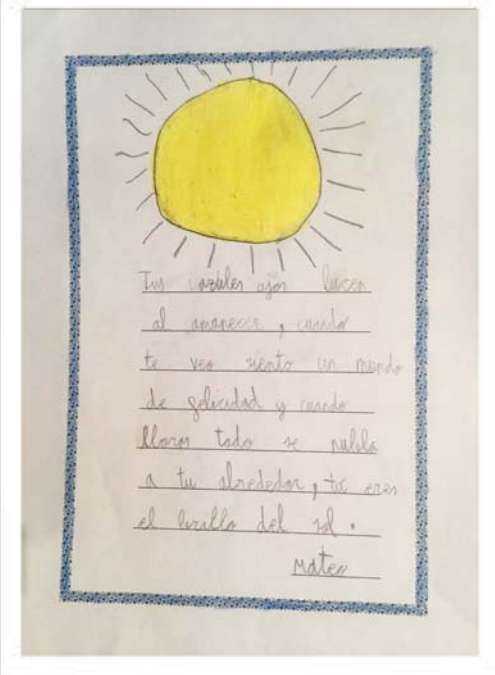 Tus azules ojos lucen
al amanecer, cuando
te veo siento un mundo
de felicidad y cuando
lloras todo se nubla
a tu alrededor, tú eres
el brillo del sol.
Mateo